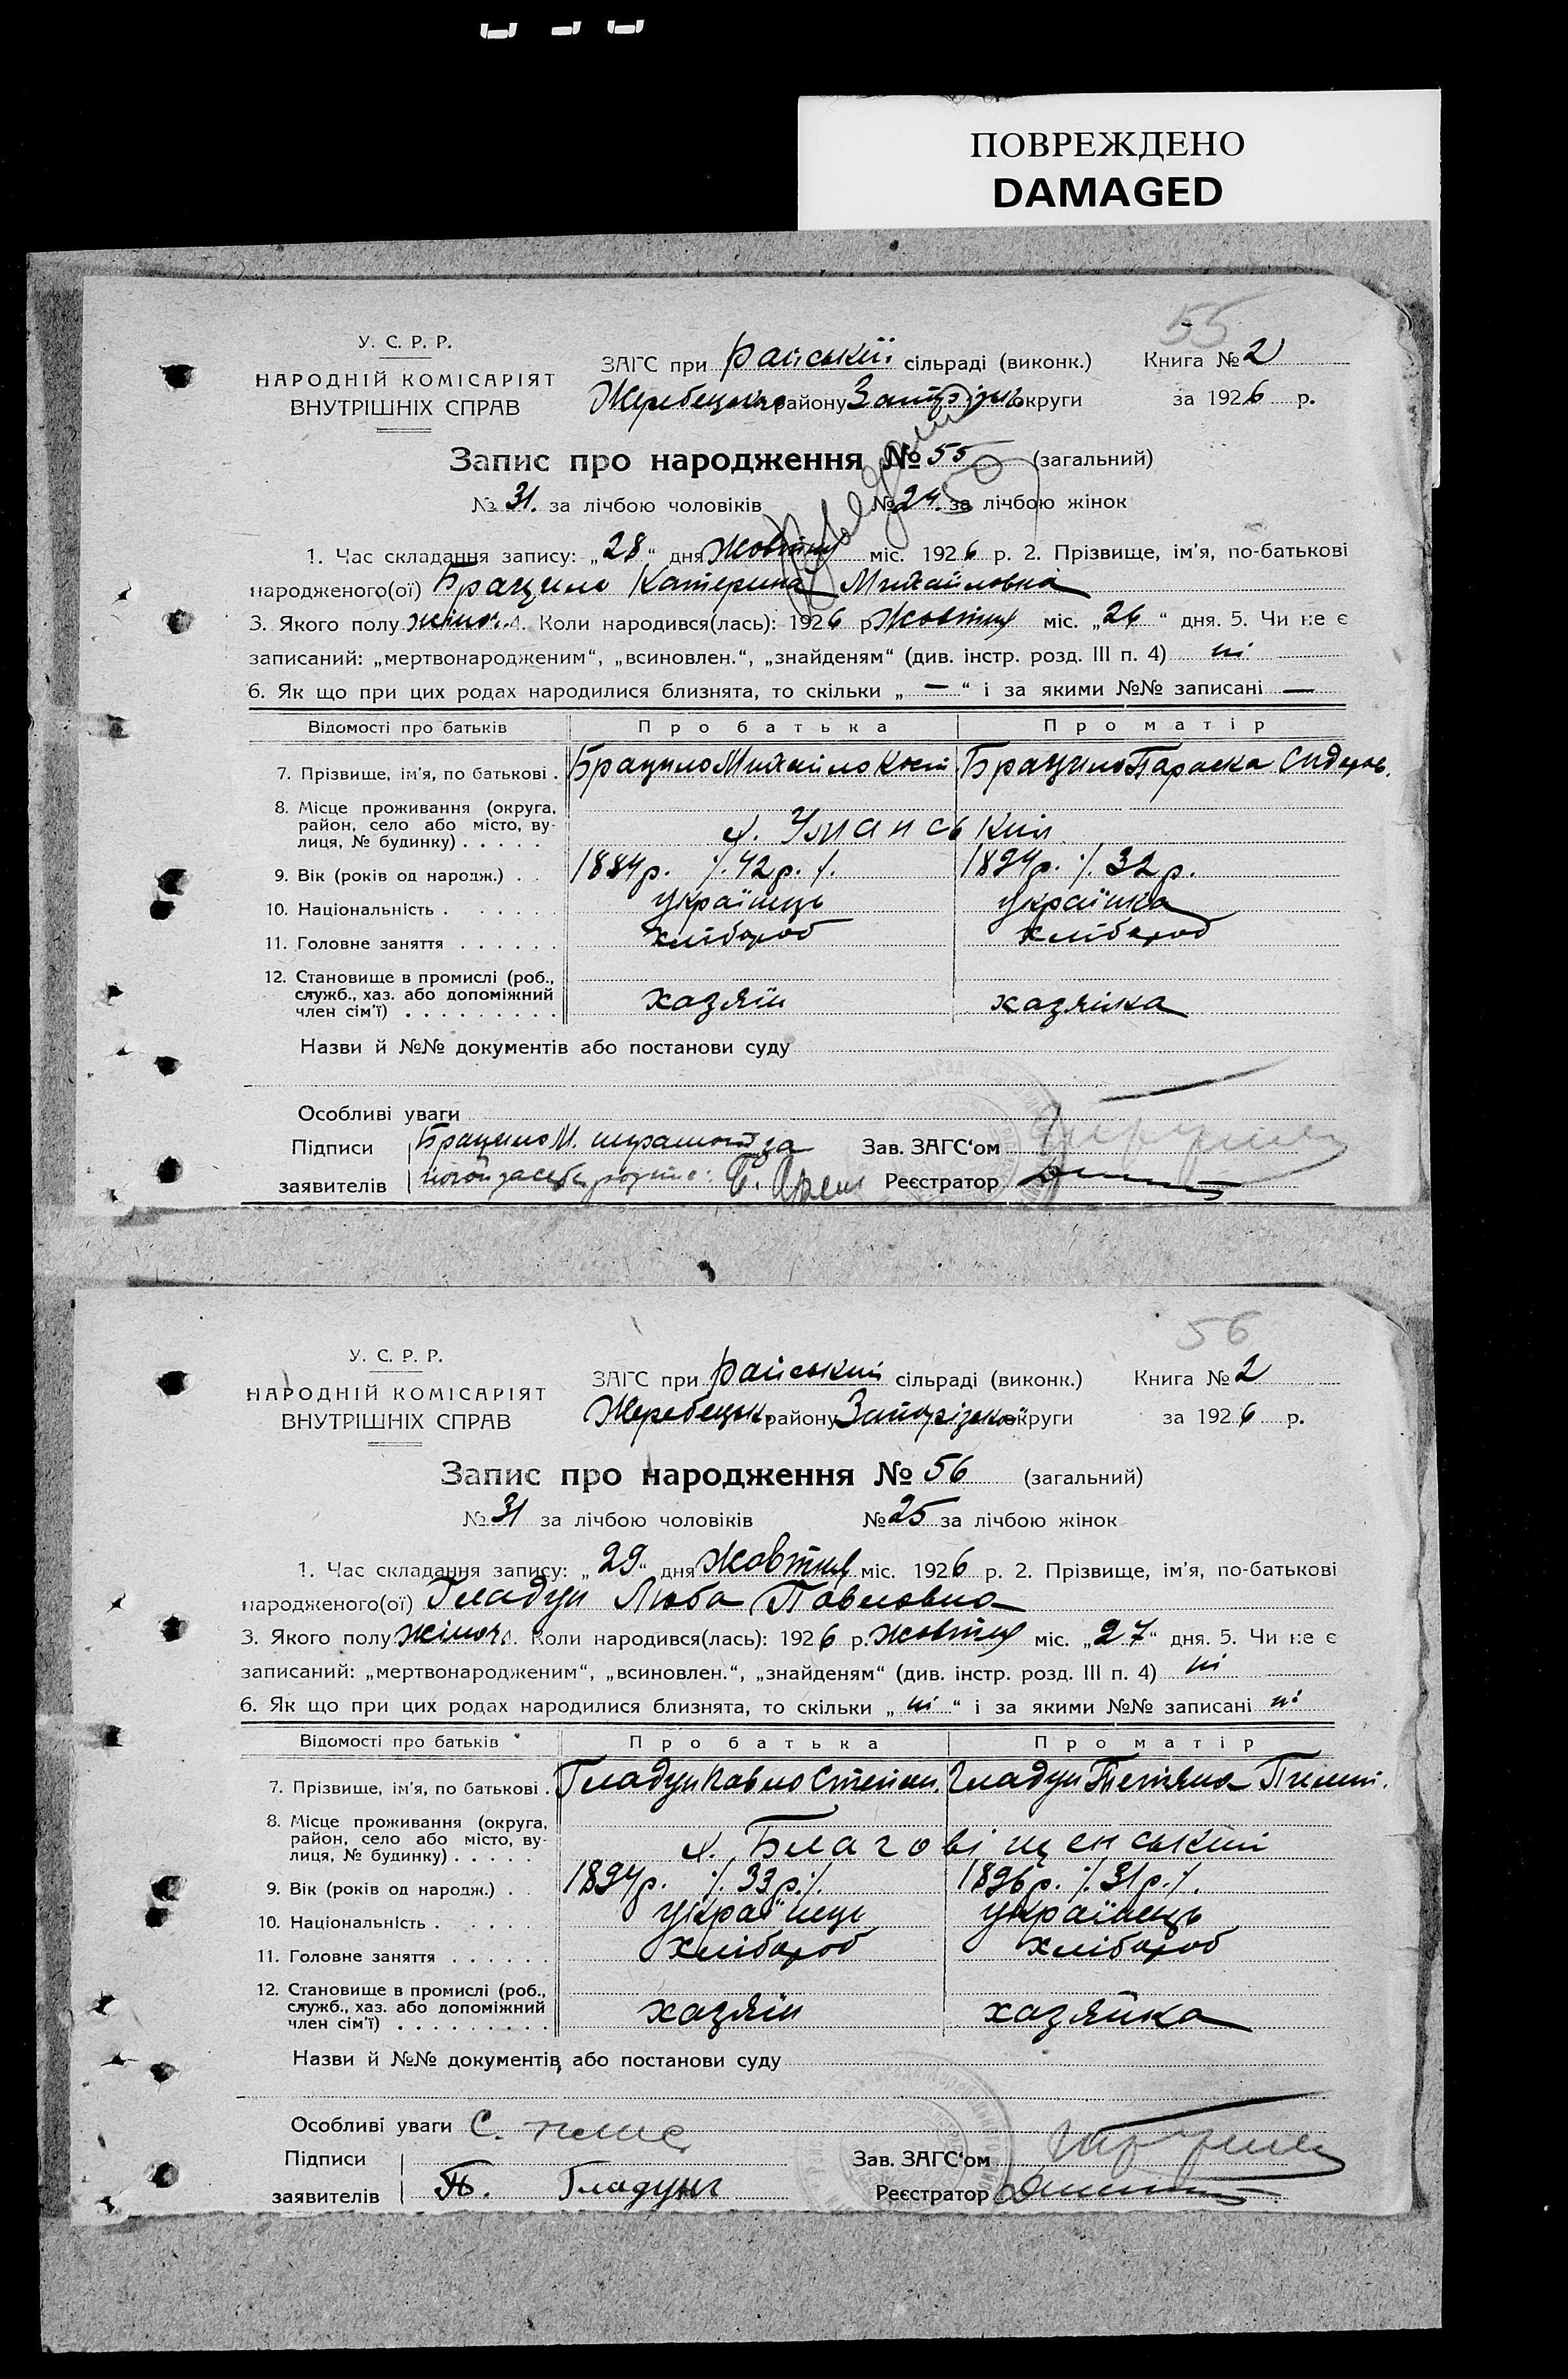 ПОВРЕЖДЕНО
DAMAGED
55
У. С. Р. Р.
НАРОДНІЙ КОМІСАРІЯТ
ВНУТРІШНІХ СПРАВ
ЗАГС при Райській сільраді (виконк.)
Жеребецького району Запорізьк округи
Книга № 2
за 1926 р.
Запис про народження № 55 (загальний)
№ 31. за лічбою чоловіків № 24. за лічбою жінок
1. Час складання запису: „28“ дня жовтня міс. 1926 р. 2. Прізвище, ім'я, по-батькові
народженого(ої) Брацило Катерина Михайловна
3. Якого полу жіноч. 4. Коли народився(лась): 1926 р. жовтня міс. „26“ дня. 5. Чи не є
записаний: „мертвонародженим“, „всиновлен.“, „знайденям“ (див. інстр. розд. III п. 4) ні
6. Як що при цих родах народилися близнята, то скільки „—“ і за якими №№ записані —
Відомості про батьків Про батька Про матір
7. Прізвище, ім'я, по батькові . Брацило Михайло Кост. Брацило Параска Сидоров.
8. Місце проживання (округа, район, село або місто, вулиця, № будинку) . . . . . х. Уманський
9. Вік (років од народж.) . . 1884р. /. 42р. /. 1894р. /. 32р.
10. Національність . . . . . . українець українка
11. Головне заняття . . . . . . хлібороб хлібороб
12. Становище в промислі (роб., служб., хаз. або допоміжний член сім'ї) . . . . . . . . . хазяїн хазяйка
Назви й №№ документів або постанови суду
Особливі уваги
Підписи Брацило М. за Зав. ЗАГС'ом
заявителів Реєстратор
56
У. С. Р. Р.
НАРОДНІЙ КОМІСАРІЯТ
ВНУТРІШНІХ СПРАВ
ЗАГС при Райській сільраді (виконк.)
Жеребецьк. району Запорізької округи
Книга № 2
за 1926 р.
Запис про народження № 56 (загальний)
№ 31 за лічбою чоловіків № 25 за лічбою жінок
1. Час складання запису: „29“ дня жовтня міс. 1926 р. 2. Прізвище, ім'я, по-батькові
народженого(ої) Гладун Люба Павловна
3. Якого полу жіноч. 4. Коли народився(лась): 1926 р. жовтня міс. „27“ дня. 5. Чи не є
записаний: „мертвонародженим“, „всиновлен.“, „знайденям“ (див. інстр. розд. III п. 4) ні
6. Як що при цих родах народилися близнята, то скільки „ні“ і за якими №№ записані ні
Відомості про батьків Про батька Про матір
7. Прізвище, ім'я, по батькові . Гладун Павло Степан. Гладун Тетяна
8. Місце проживання (округа, район, село або місто, вулиця, № будинку) . . . . . х. Благовіщенський
9. Вік (років од народж.) . . 1894р. /. 33р. /. 1896р. /. 31р. /.
10. Національність . . . . . . українець українець
11. Головне заняття . . . . . . хлібороб хлібороб
12. Становище в промислі (роб., служб., хаз. або допоміжний член сім'ї) . . . . . . . . . хазяїн хазяйка
Назви й №№ документів або постанови суду
Особливі уваги
Підписи Зав. ЗАГС'ом
заявителів Гладун Реєстратор